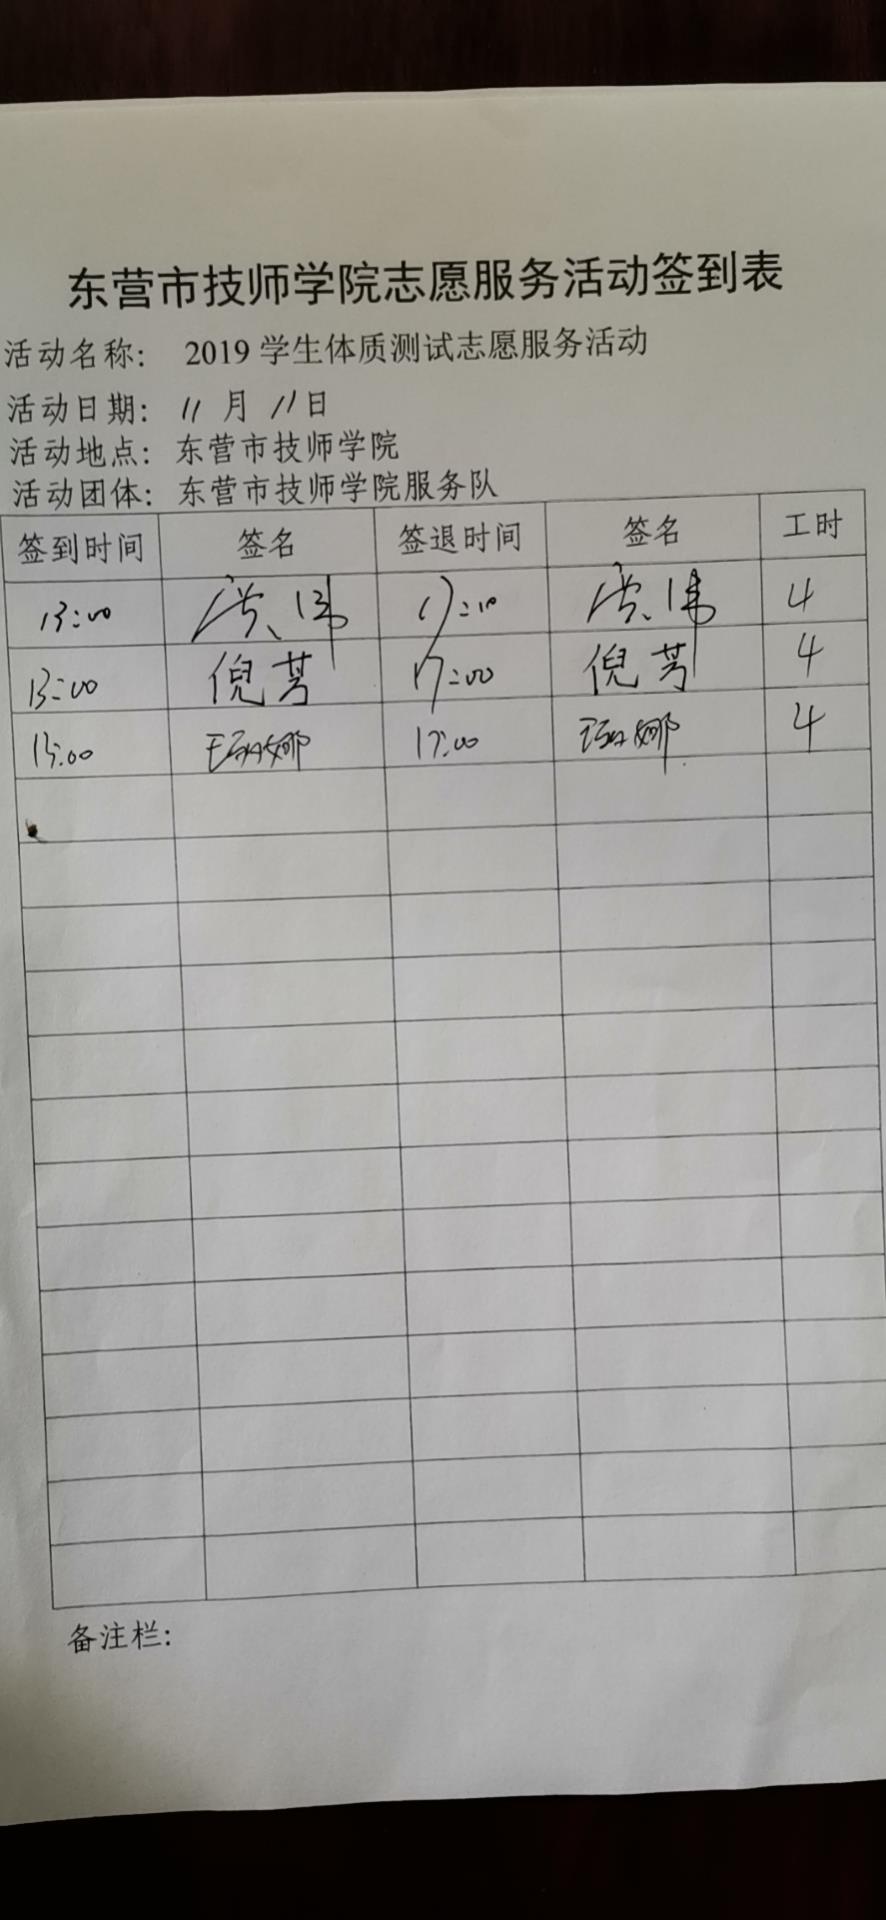 东营市技师学院志愿服务活动签到表
活动名称： 2019 学生体质测试志愿服务活动
活动日期： 11 月 11日
活动地点：东营市技师学院
活动团体：东营市技师学院服务队
签到时间 签名 签退时间 签名 工时
13:00 17:10 4
13:00 倪芳 17:00 倪芳 4
13:00 17:00 4
备注栏：